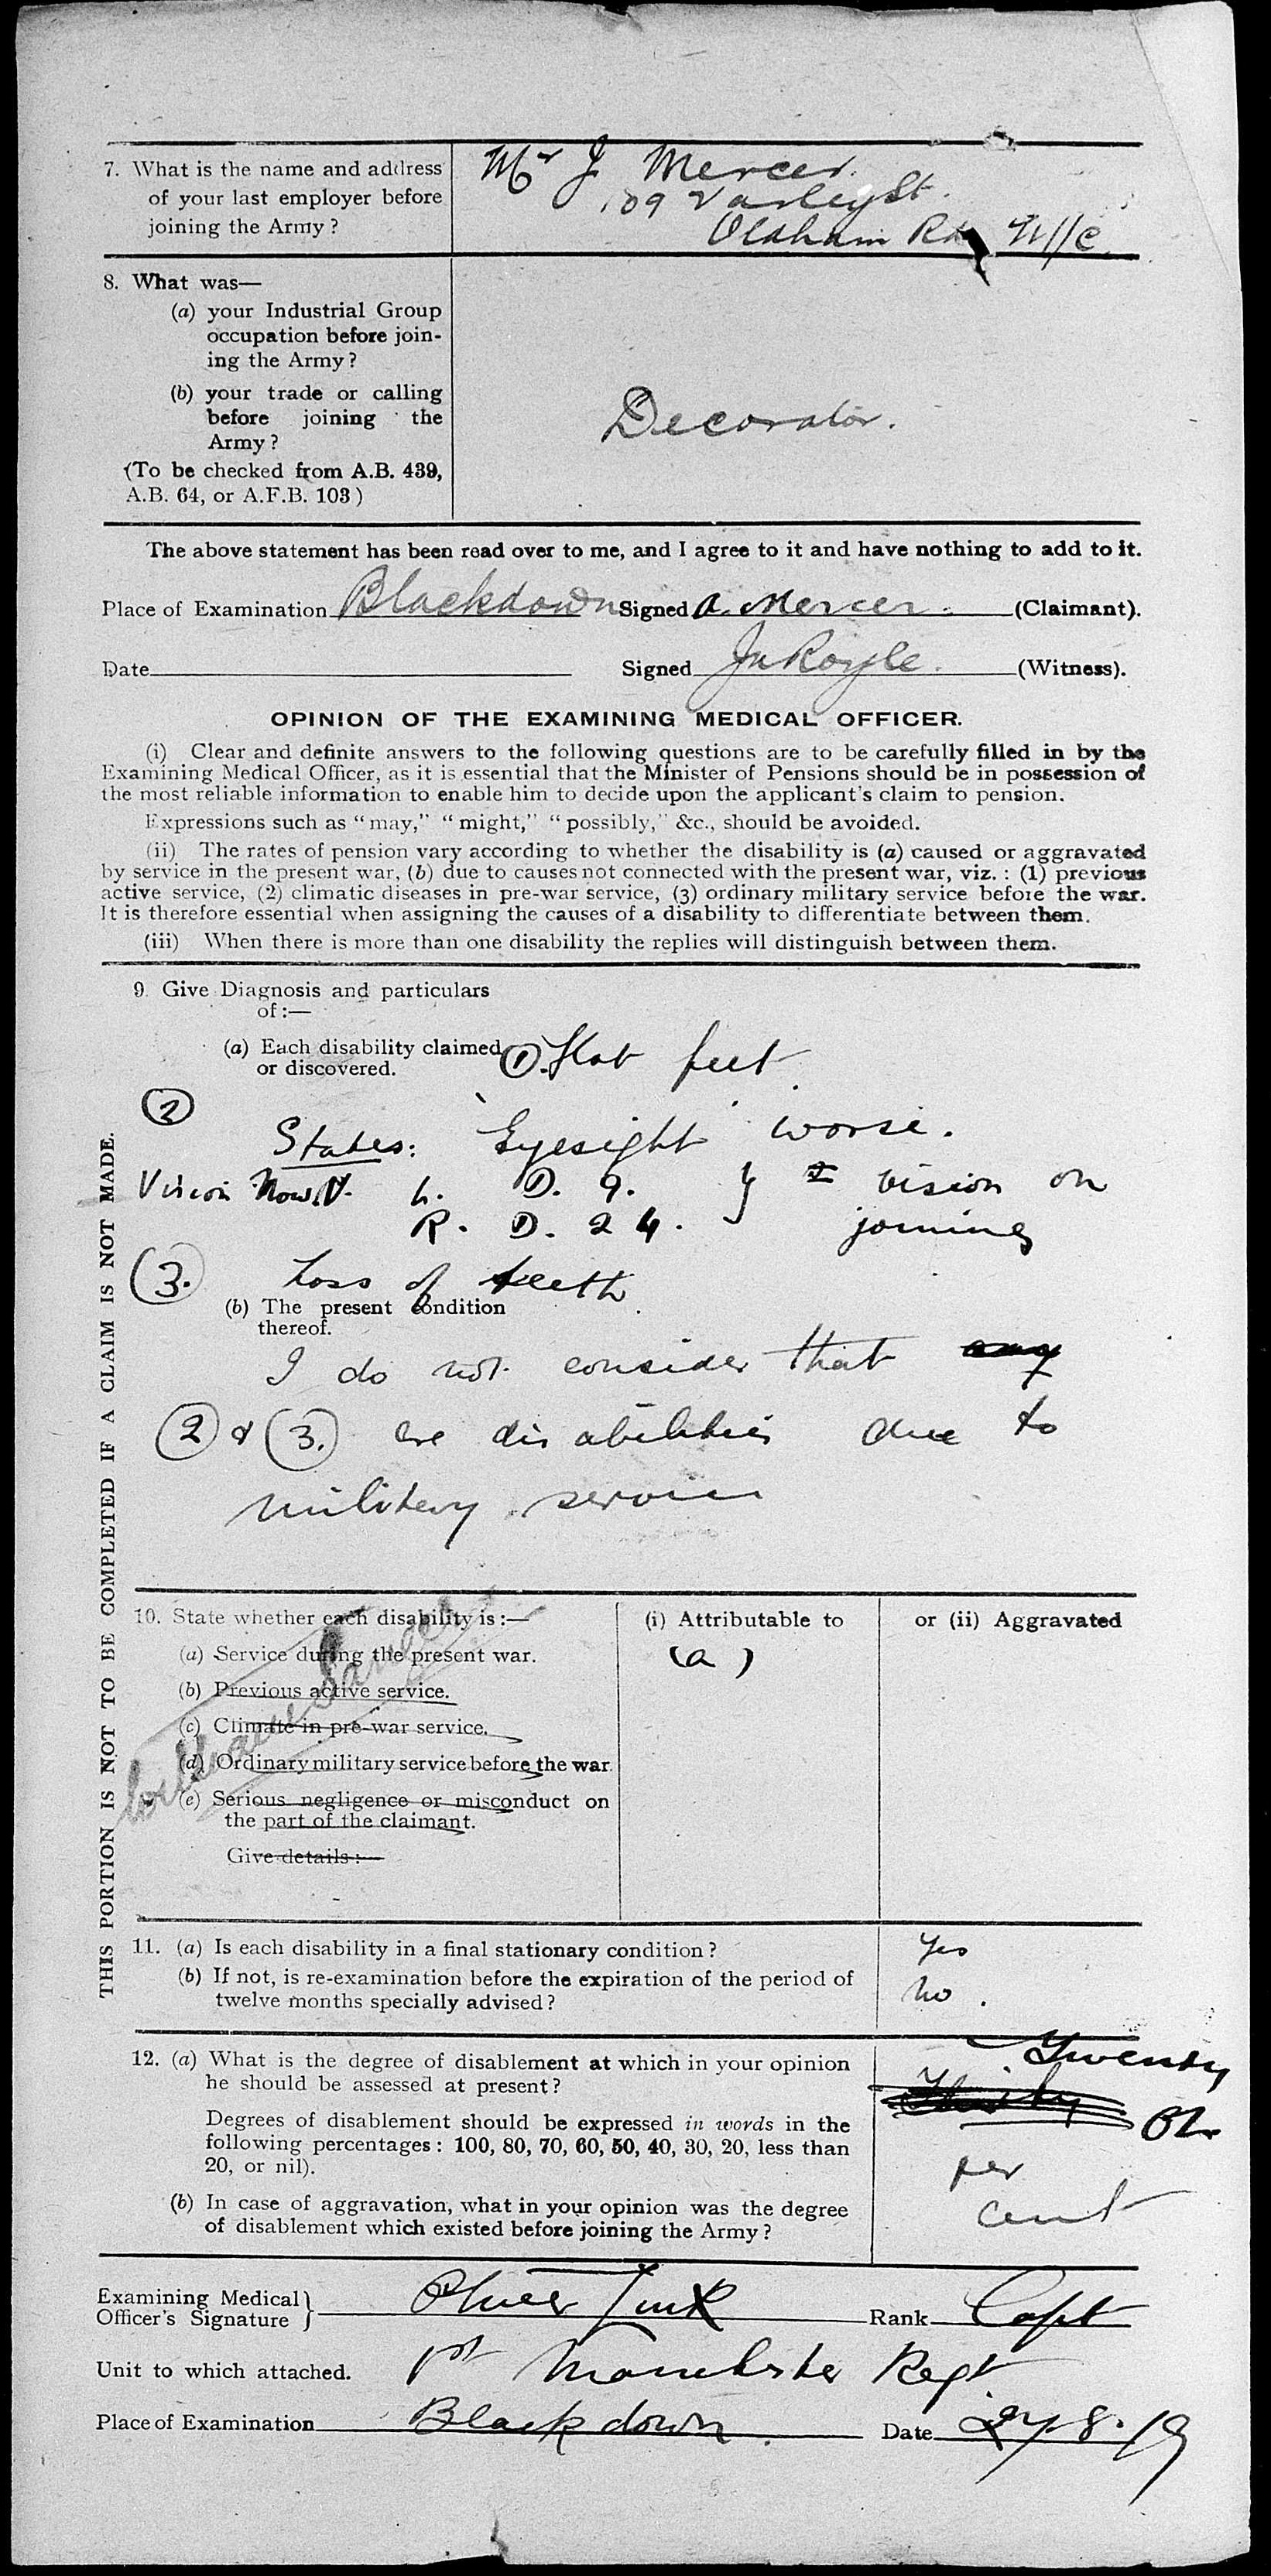 7. What is the name and address
of your last employer before
joining the Army?
Mr J Mercer.
109 Varley St.
Oldham Rd M//c
8. What was—
(a) your Industrial Group
occupation before join-
ing the Army?
(b) your trade or calling
before joining the
Army?
(To be checked from A.B. 439,
A.B. 64, or A.F.B. 103)
Decorator.
The above statement has been read over to me, and I agree to it and have nothing to add to it.
Place of Examination Blackdown Signed A. Mercer. (Claimant).
Date Signed Royle. (Witness).
OPINION OF THE EXAMINING MEDICAL OFFICER.
(i) Clear and definite answers to the following questions are to be carefully filled in by the
Examining Medical Officer, as it is essential that the Minister of Pensions should be in possession of
the most reliable information to enable him to decide upon the applicant's claim to pension.
Expressions such as "may," "might," "possibly," &c., should be avoided.
(ii) The rates of pension vary according to whether the disability is (a) caused or aggravated
by service in the present war, (b) due to causes not connected with the present war, viz.: (1) previous
active service, (2) climatic diseases in pre-war service, (3) ordinary military service before the war.
It is therefore essential when assigning the causes of a disability to differentiate between them.
(iii) When there is more than one disability the replies will distinguish between them.
THIS PORTION IS NOT TO BE COMPLETED IF A CLAIM IS NOT MADE.
9. Give Diagnosis and particulars
of:—
(a) Each disability claimed
or discovered.
(1). Flat feet.
(2)
States: "Eyesight" worse.
Vision Now. V. L. D. 9. } = vision on
R. D. 24. joining
(3. Loss of teeth.
(b) The present condition
thereof.
I do not consider that any
(2) & (3.) are disabilities due to
military service
10. State whether each disability is:—
(a) Service during the present war.
(b) Previous active service.
(c) Climate in pre-war service.
(d) Ordinary military service before the war.
(e) Serious negligence or misconduct on
the part of the claimant.
Give details:—
(i) Attributable to
(a)
or (ii) Aggravated
11. (a) Is each disability in a final stationary condition?
Yes
(b) If not, is re-examination before the expiration of the period of
twelve months specially advised?
No.
12. (a) What is the degree of disablement at which in your opinion
he should be assessed at present?
Twenty
Thirty
Degrees of disablement should be expressed in words in the
following percentages: 100, 80, 70, 60, 50, 40, 30, 20, less than
20, or nil).
per
cent
(b) In case of aggravation, what in your opinion was the degree
of disablement which existed before joining the Army?
Examining Medical
Officer's Signature } Oliver Rank Capt
Unit to which attached. 1st Manchester Regt
Place of Examination Blackdown. Date 27.8.19